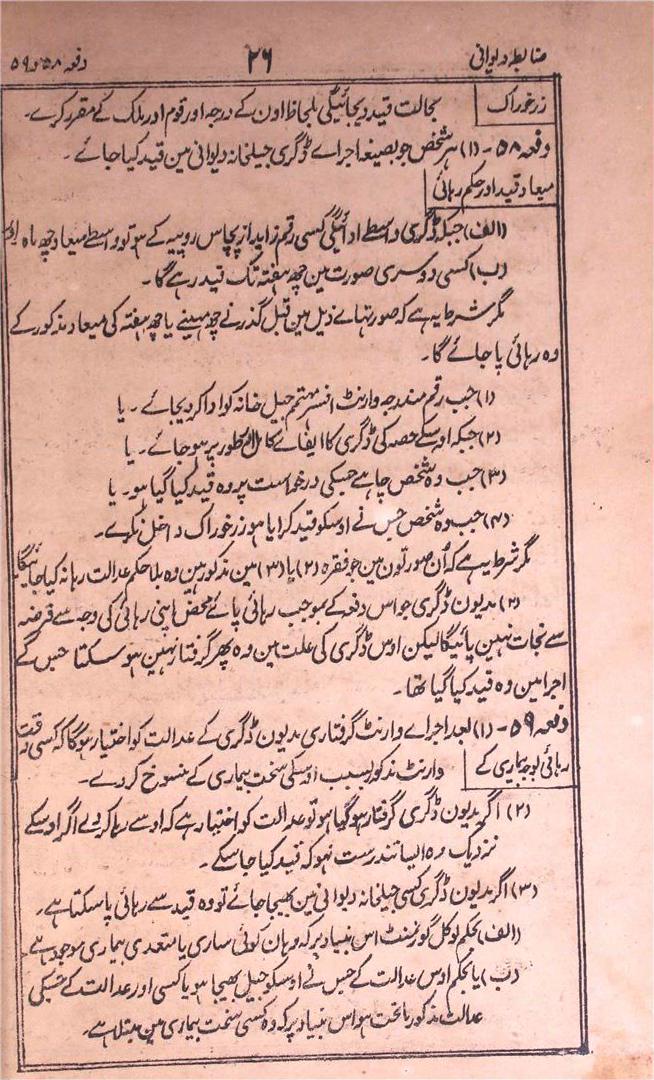 ضابطہ دیوانی ۲۶ دفعہ ۵۸ و ۵۹
زر خوراک بحالت قید دیجائیگی بلحاظ اون کے درجہ اور قوم اور ملک کے مقرر کرے۔
دفعہ ۵۸۔ (۱) ہر شخص جو بصیغہ اجراے ڈگری جیلخانہ دیوانی مین قید کیا جائے۔
میعاد قید اور حکم رہائی
(الف) جبکہ ڈگری واسطے ادائیگی کسی رقم زاید از پچاس روپیہ کے ہو تو واسطے میعاد چھ ماہ اور
(ب) کسی دوسری صورت مین چھ ہفتہ تک قید رہے گا۔
مگر شرط یہ ہے کہ صورتہاے ذیل مین قبل گذرنے چھ مہینے یا چھ ہفتہ کی میعاد مذکور کے
وہ رہائی پا جائے گا۔
(۱) جب رقم مندرجہ وارنٹ افسر مہتمم جیل خانہ کو ادا کر دیجائے۔ یا
(۲) جبکہ اوسکے حصہ کی ڈگری کا ایفاے کامل اور طور پر ہو جائے۔ یا
(۳) جب وہ شخص چاہے جسکی درخواست پر وہ قید کیا گیا ہو۔ یا
(۴) جب وہ شخص جس نے اوسکو قید کرایا ہو زر خوراک داخل نکرے۔
مگر شرط یہ ہے کہ اُن صورتون مین جو فقرہ (۲) یا (۳) مین مذکور ہین وہ بلا حکم عدالت رہا نہ کیا جائیگا
(۲) مدیون ڈگری جو اس دفعہ کے بموجب رہائی پائے محض اپنی رہائی کی وجہ سے قرضہ
سے نجات نہین پائیگا لیکن اوس ڈگری کی علت مین وہ پھر گرفتار نہین ہو سکتا جس کے
اجرا مین وہ قید کیا گیا تھا۔
دفعہ ۵۹۔ (۱) بعد اجراے وارنٹ گرفتاری مدیون ڈگری کے عدالت کو اختیار ہوگا کہ کسی وقت
رہائی بوجہ بیماری کے وارنٹ مذکور بسبب اوسکی سخت بیماری کے منسوخ کر دے۔
(۲) اگر مدیون ڈگری گرفتار ہو گیا ہو تو عدالت کو اختیار ہے کہ اوسے رہا کر دے اگر اوسکے
نزدیک وہ ایسا تندرست نہو کہ قید کیا جا سکے۔
(۳) اگر مدیون ڈگری کسی جیلخانہ دیوانی مین بھیجا جائے تو وہ قید سے رہائی پا سکتا ہے۔
(الف) بحکم لوکل گورنمنٹ اس بنیاد پر کہ وہان کوئی ساری یا متعدی بیماری موجود ہے
(ب) یا بحکم اوس عدالت کے جس نے اوسکو جیل بھیجا ہو یا کسی اور عدالت کے جسکی
عدالت مذکور ماتحت ہو اس بنیاد پر کہ وہ کسی سخت بیماری مین مبتلا ہے۔